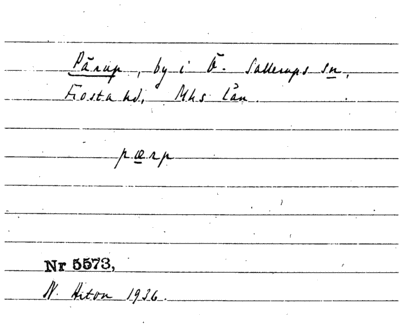 Pārup, by i Ö. Sallerups sn,
Frosta hd, Mhs län.
pærp
Nr 5573,
N. 1936.